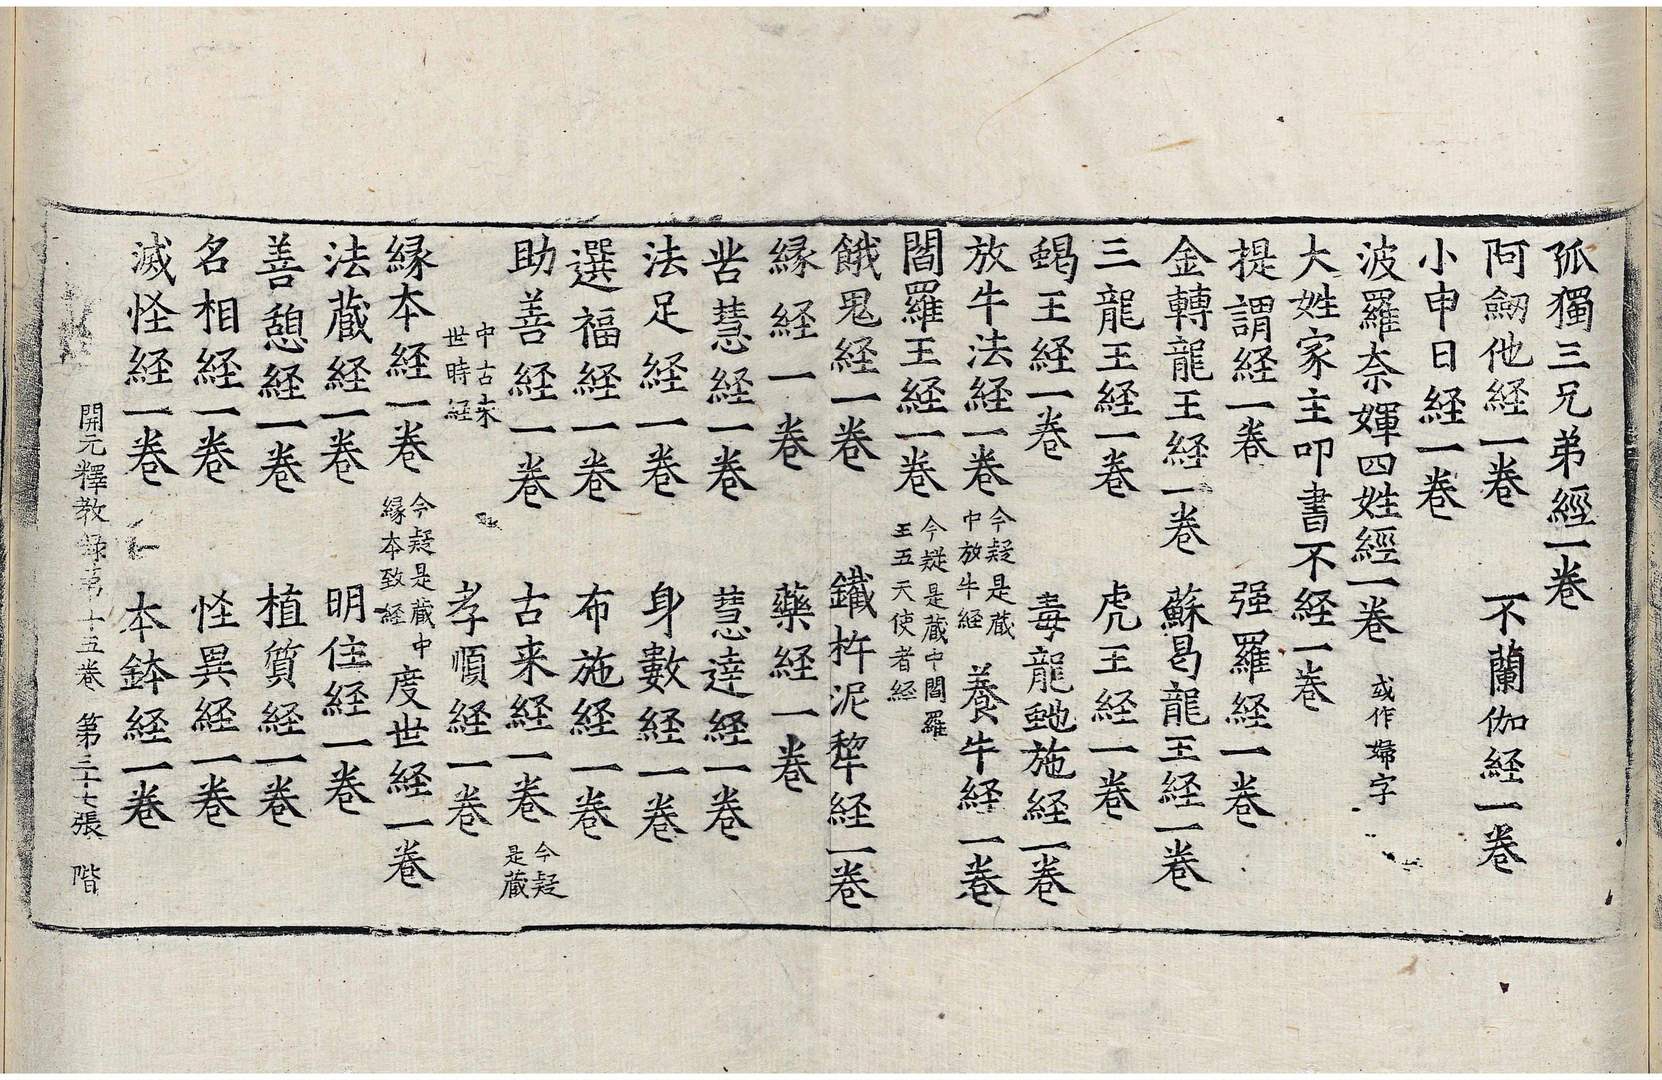 孤獨三兄弟經一卷
阿䶵他経一卷 不蘭伽経一卷
小申日経一卷
波羅奈媈四姓經一卷 或作婦字
大姓家主叩書不経一卷
提謂経一卷 强羅経一卷
金轉龍王経一卷 蘇曷龍王経一卷
三龍王経一卷 虎王経一卷
蝎王経一卷 毒龍虵施経一卷
放牛法経一卷 今疑是蔵中放牛経 養牛経一卷
閻羅王経一卷 今疑是蔵中閻羅王五天使者経
餓鬼経一卷 鐵杵泥犂経一卷
縁経一卷 藥経一卷
慧経一卷 慧達経一卷
法足経一卷 身數経一卷
選福経一卷 布施経一卷
助善経一卷 古来経一卷 今疑是蔵
中古来世時経 孝順経一卷
縁本経一卷 今疑是蔵中縁本致経 度世経一卷
法蔵経一卷 明住経一卷
善憩経一卷 植質経一卷
名相経一卷 怪異経一卷
滅怪経一卷 本鉢経一卷
開元釋教錄第十五卷 第三十七張 階